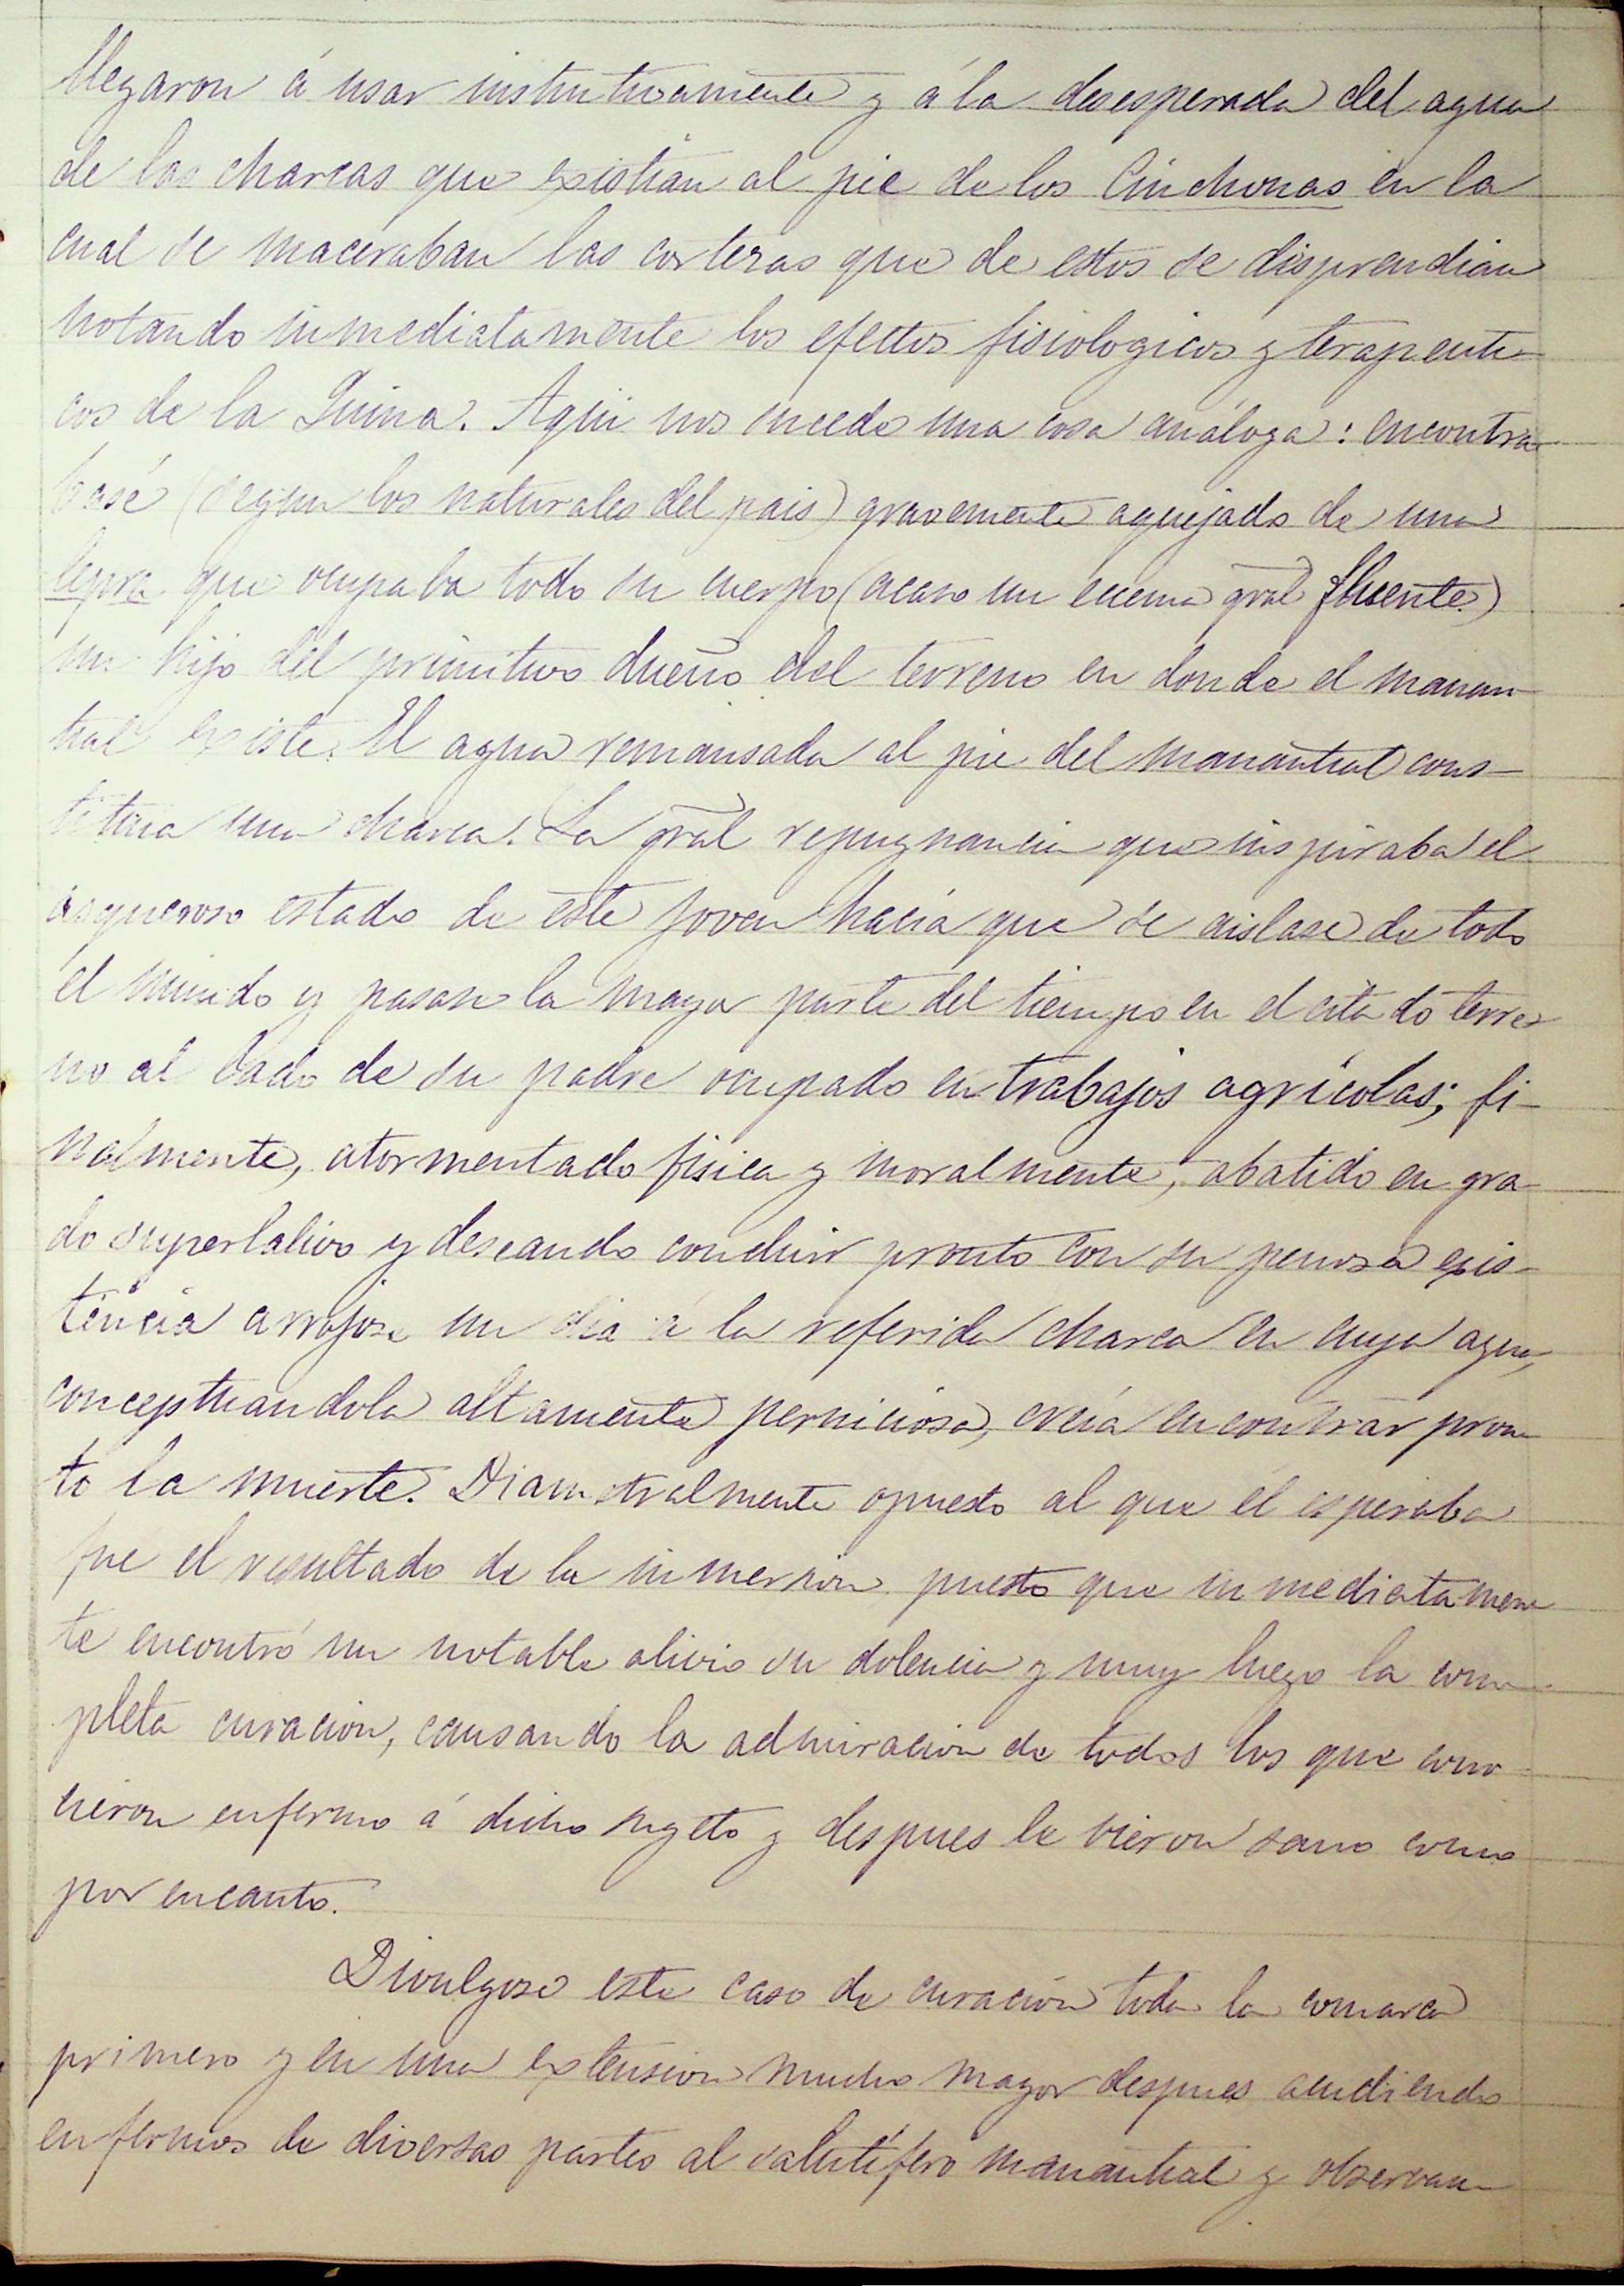 llegaron á usar instintivamente y á la desesperada del agua
de las charcas que existian al pie de los Cinchonas en la
cual se maceraban las cortezas que de estos se disprendian
notando inmediatamente los efectos fisiologicos y terapeuti-
cos de la Quina. Aqui nos sucede una cosa análoga: encontra-
base (segun los naturales del pais) gravemente aquejado de una
lepra que ocupaba todo su cuerpo (acaso un eczema gral fluente)
un hijo del primitivo dueño del terreno en donde el manan-
tial existe. El agua remansada al pie del manantial cons-
tituia una charca. La gral repugnancia que inspiraba el
asqueroso estado de este joven hacia que se aislase de todo
el mundo y pasase la mayor parte del tiempo en el citado terre-
no al lado de su padre ocupado en trabajos agrícolas; fi-
nalmente, atormentado fisica y moralmente, abatido en gra-
do superlativo y deseando concluir pronto con su penosa exis-
tencia arrojose un dia á la referida charca en cuya agua,
conceptuandola altamente perniciosa, creia encontrar pron-
to la muerte. Diametralmente opuesto al que él esperaba
fue el resultado de la inmersion puesto que inmediatamen-
te encontró un notable alivio su dolencia y muy luego la com-
pleta curacion, causando la admiracion de todos los que cono-
cieron enfermo á dicho sugeto y despues le vieron sano como
por encanto.
Divulgose este caso de curación toda la comarca
primero y en una extension mucho mayor despues acudiendo
enfermos de diversas partes al salutífero manantial y observan-